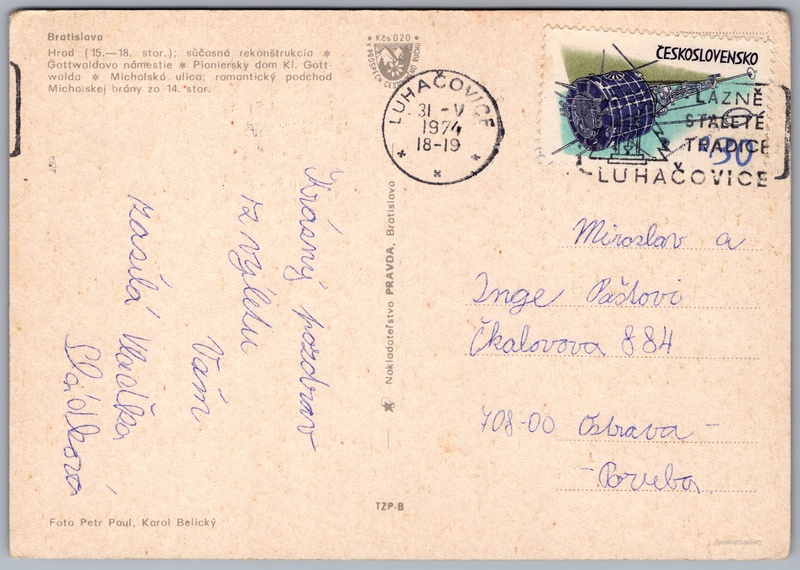 Bratislava
Hrad (15.—18. stor.); súčasná rekonštrukcia *
Gottwaldovo námestie * Pioniersky dom Kl. Gott-
walda * Michalská ulica; romantický podchod
Michalskej brány zo 14. stor.
Kčs 0,20
LUHAČOVICE
31 -V
1974
18-19
ČESKOSLOVENSKO
LÁZNĚ
STALETÉ
TRADICE
LUHAČOVICE
30
Krásný pozdrav
z výletu
Vám
zasílá Vladka
Sládková
Nakladateľstvo PRAVDA, Bratislava
Miroslav a
Inge Paštovi
Čkalovova 884
708-00 Ostrava -
- Poruba
TZP-B
Foto Petr Paul, Karol Belický